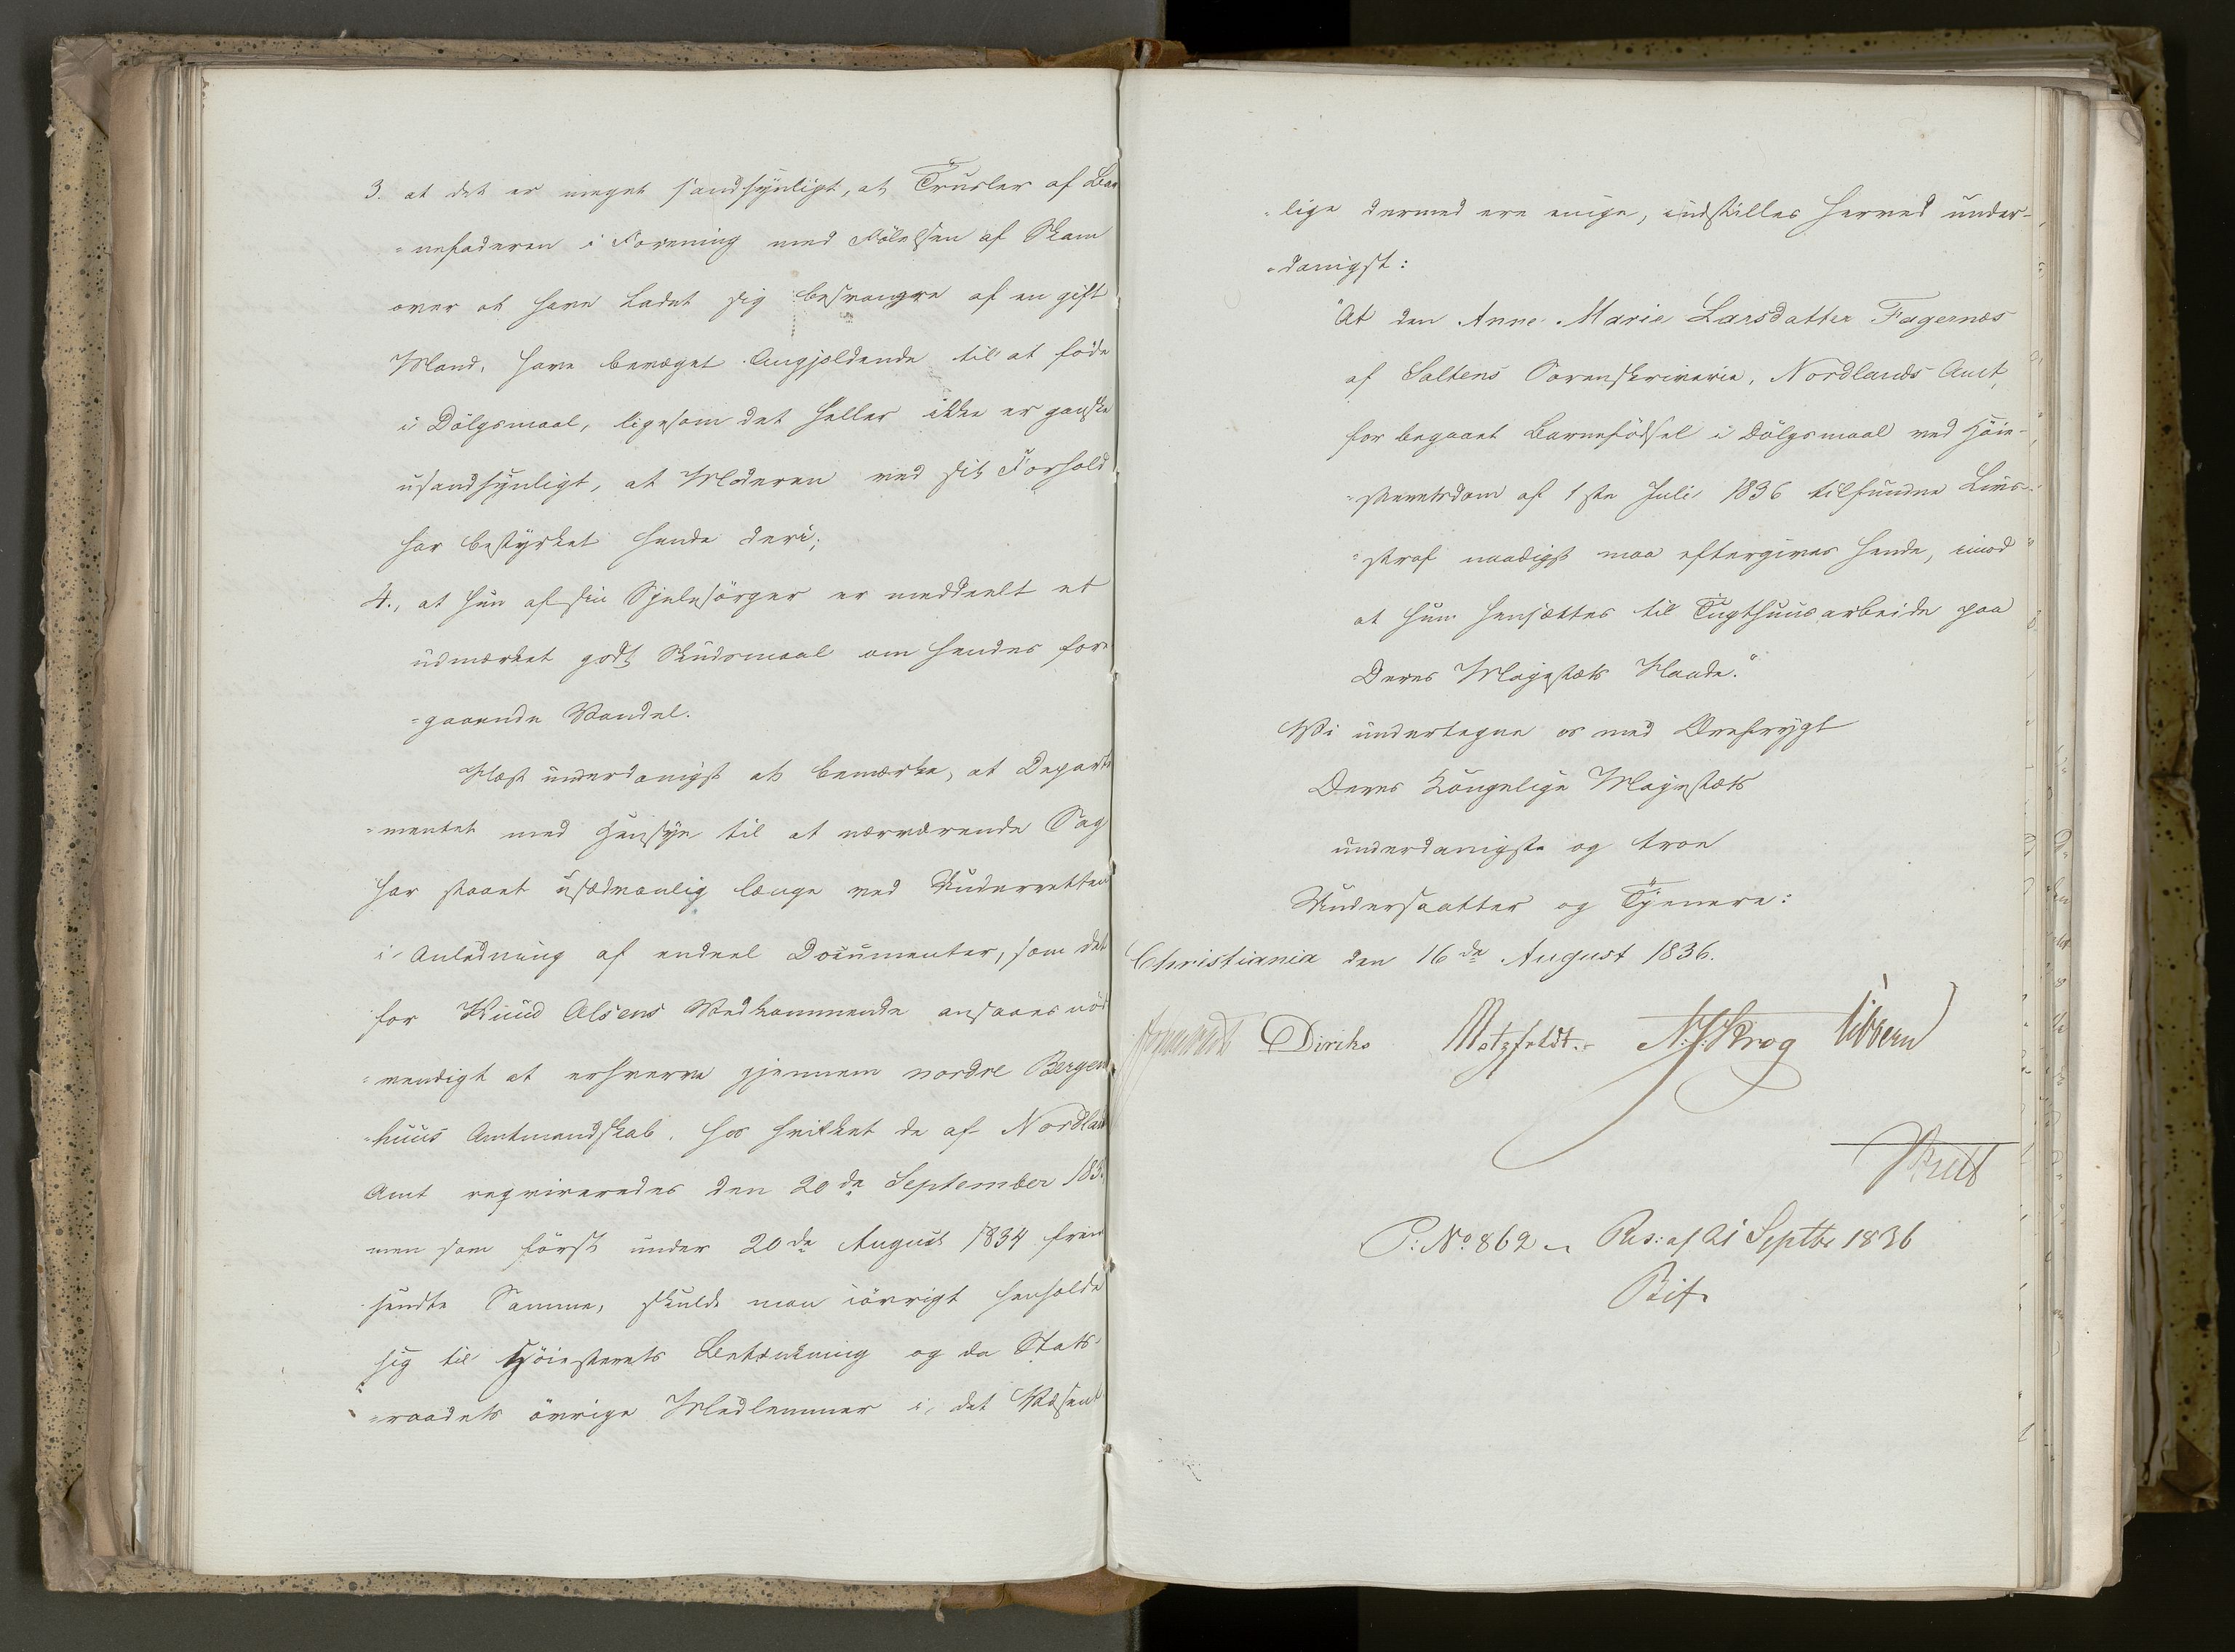 3. at det er meget sandsynligt, at Trusler af Bar
=nefaderen i Forening med Følelsen af Skam
over at have ladet sig besvangre af en gift
Mand, have bevæget Angjældende til at føde
i Dølgsmaal, ligesom det heller ikke er ganske
usandsynligt, at Moderen ved sit Forhold
har bestyrket hende deri;
4., at hun af sin Sjelesørger er meddeelt et
udmærket godt Skudsmaal om hendes for
=gaaende Vandel.
Næst underdanigst at bemærke, at Departe
=mentet med Hensyn til at nærværende Sag
har staaet usædvanlig længe ved Underretten
i Anledning af endeel Documenter, som det
for Knud Olsens Vedkommende ansaaes nød
=vendigt at erhverve gjennem nordre Bergen
=huus Amtmandskab, hos hvilket de af Nordland
Amt reqvireredes den 20de September 183
men som først under 20de August 1834 frem
sendte Samme, skulde man iøvrigt henholde
sig til Høiesterets Betænkning og da Stats-
=raadets øvrige Medlemmer i det Væsent
=lige dermed ere enige, indstilles herved under-
=danigst:
"At den Anne Marie Larsdatter Fagernæs
af Saltens Sorenskriverie, Nordlands Amt,
for begaaet Barnefødsel i Dølgsmaal ved Høie-
=steretsdom af 1ste Juli 1836 tilfundne Livs-
=straf naadigst maa eftergives hende, imod
at hun hensættes til Tugthuusarbeide paa
Deres Majestæts Naade."
Vi undertegne os med Ærefrygt
Deres Kongelige Majestæts
underdanigste og troe
Undersaatter og Tjenere:
Christiania den 16de August 1836.
Diriks Motzfeldt. N. J. Krog Vibe
P: No 862 Res: af 21 Septbr 1836
Bif.